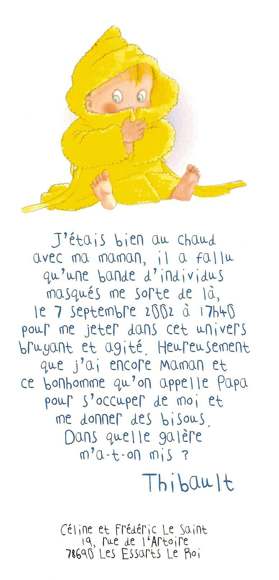 J'étais bien au chaud
avec ma maman, il a fallu
qu'une bande d'individus
masqués me sorte de là,
le 7 septembre 2002 à 17h40
pour me jeter dans cet univers
bruyant et agité. Heureusement
que j'ai encore Maman et
ce bonhomme qu'on appelle Papa
pour s'occuper de moi et
me donner des bisous.
Dans quelle galère
m'a-t-on mis ?
Thibault
Céline et Frédéric Le Saint
19, rue de l'Artoire
78690 Les Essarts Le Roi